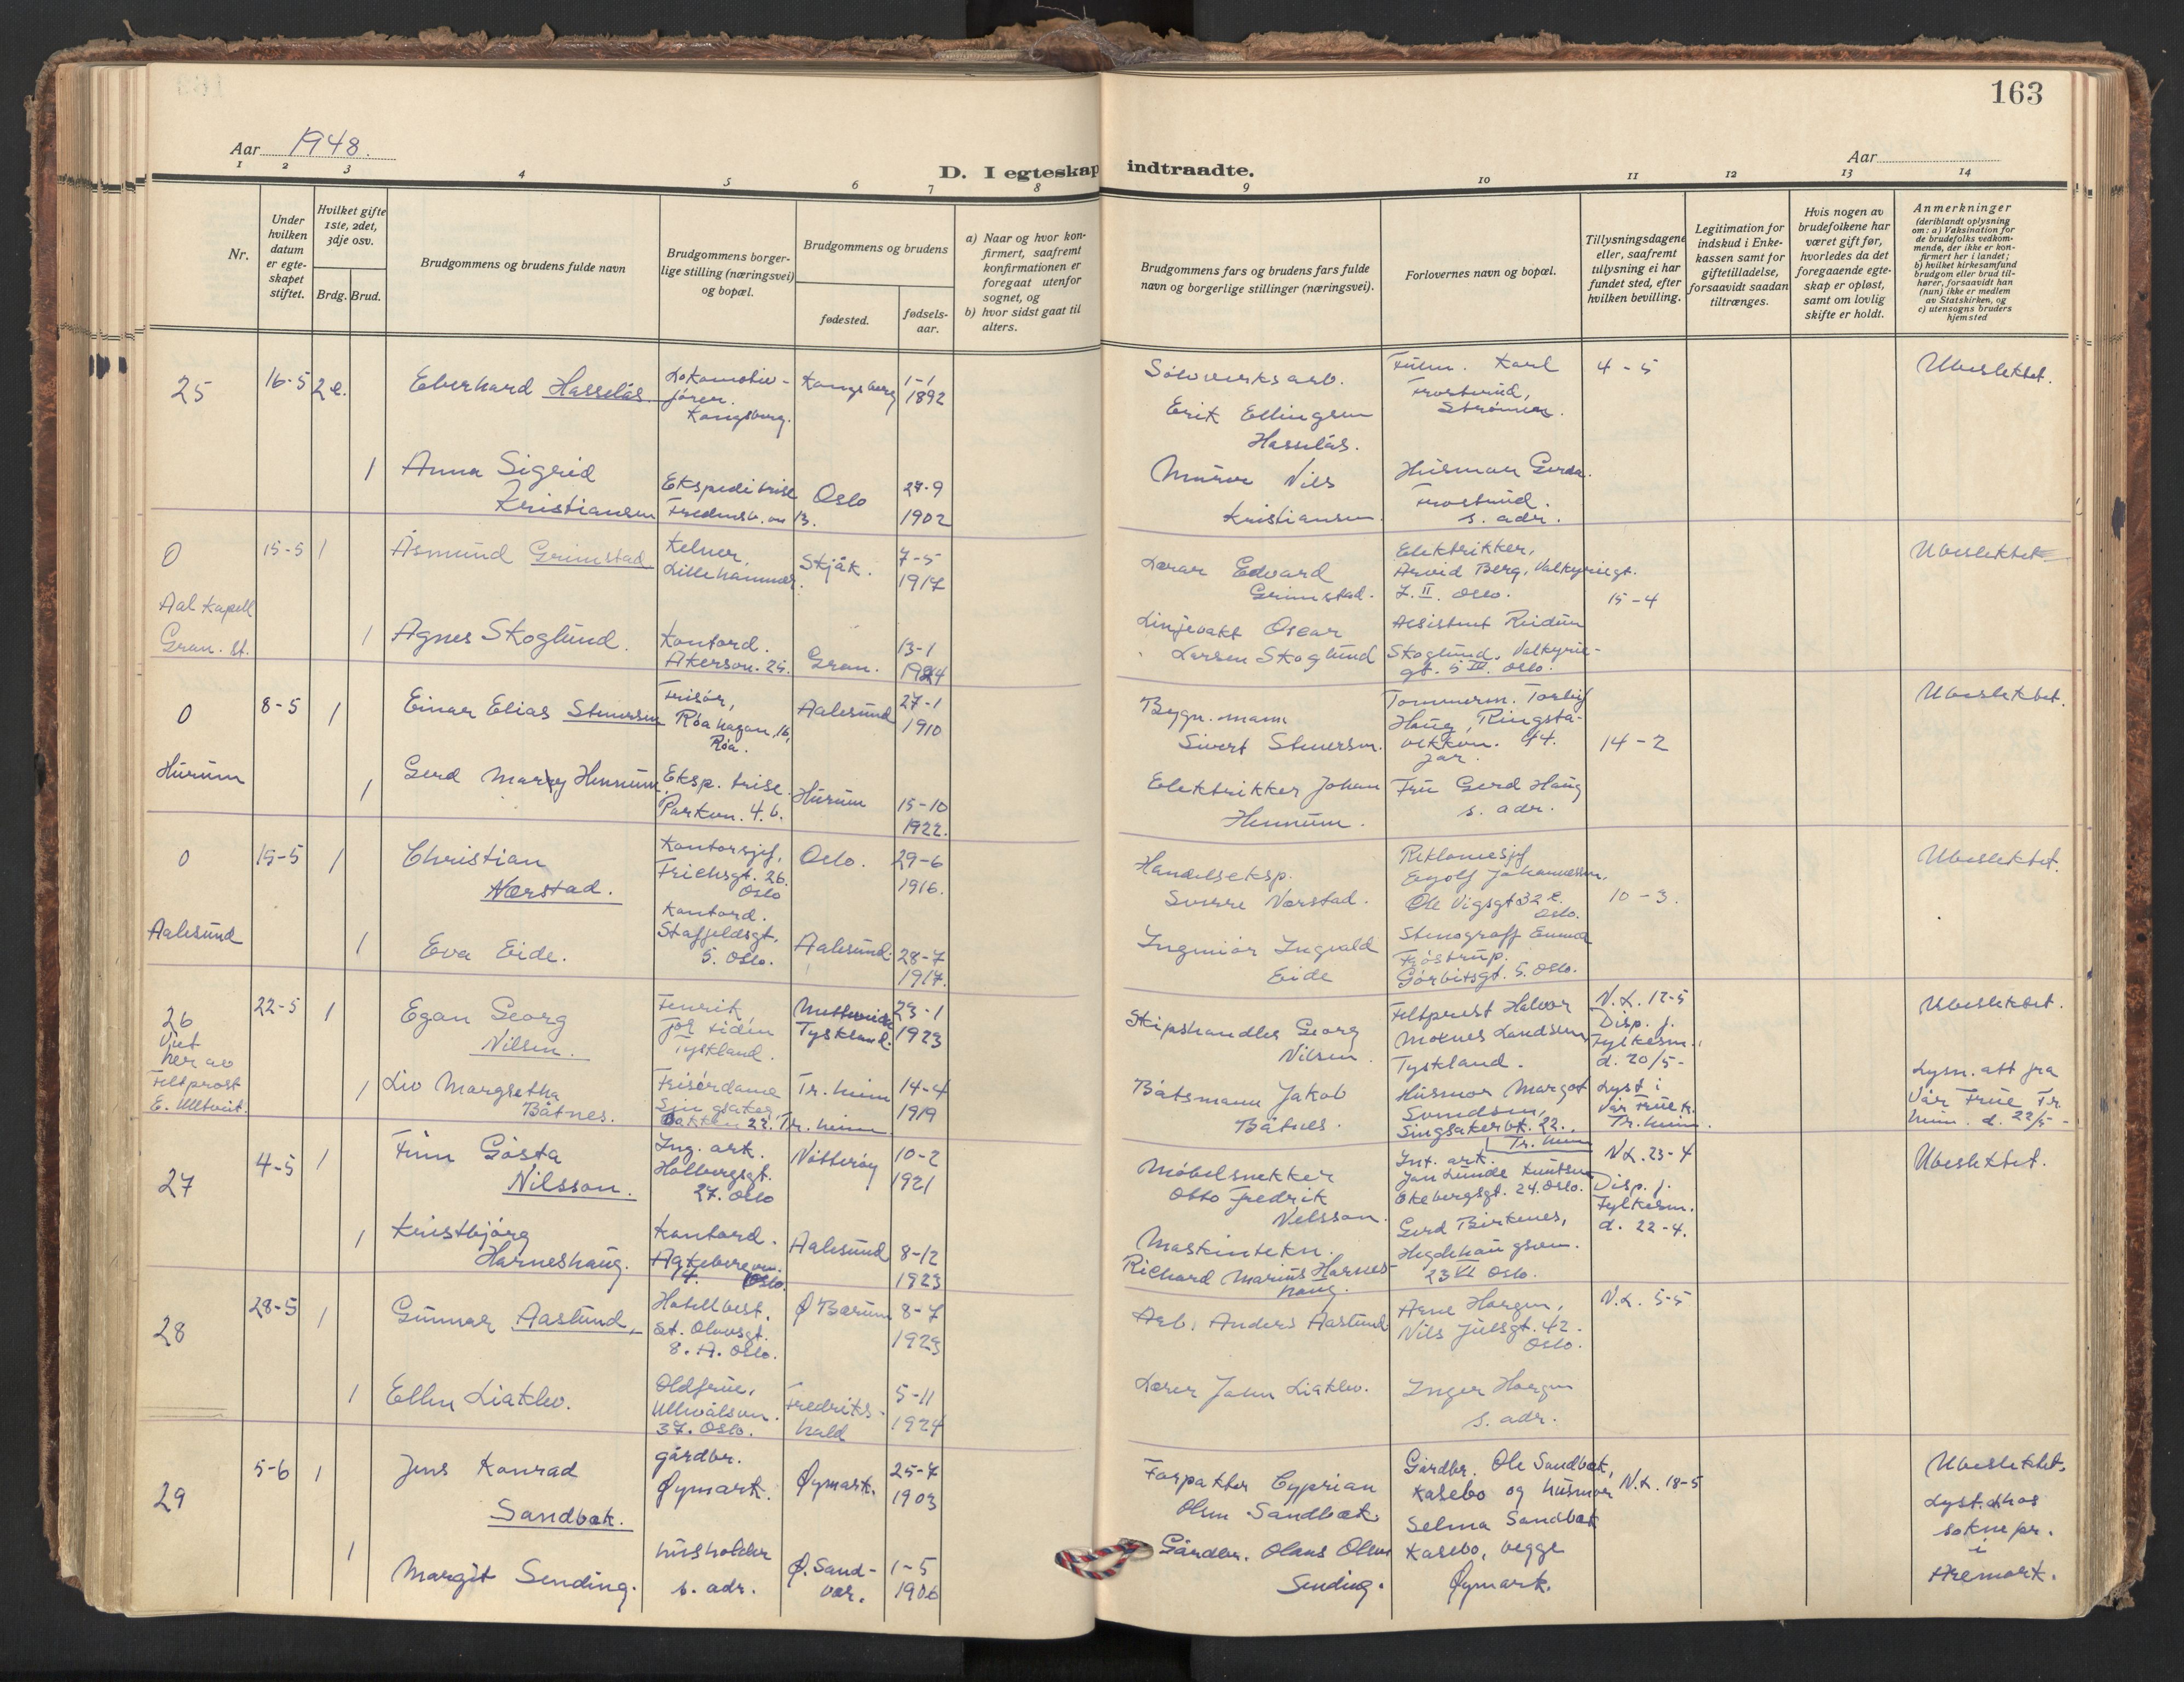 163
Aar 1948.
Aar
D. I egteskap indtraadte.
1 2 3 4 5 6 7 8 9 10 11 12 13 14
Nr.
Under hvilken datum er egteskapet stiftet.
Hvilket gifte 1ste, 2det, 3dje osv.
Brdg. Brud.
Brudgommens og brudens fulde navn
Brudgommens borgerlige stilling (næringsvei) og bopæl.
Brudgommens og brudens
fødested.
fødselsaar.
a) Naar og hvor konfirmert, saafremt konfirmationen er foregaat utenfor sognet, og
b) hvor sidst gaat til alters.
Brudgommens fars og brudens fars fulde navn og borgerlige stillinger (næringsvei).
Forlovernes navn og bopæl.
Tillysningsdagene eller, saafremt tillysning ei har fundet sted, efter hvilken bevilling.
Legitimation for indskud i Enkekassen samt for giftetilladelse, forsaavidt saadan tiltrænges.
Hvis nogen av brudefolkene har været gift før, hvorledes da det foregaaende egteskap er opløst, samt om lovlig skifte er holdt.
Anmerkninger
(deriblandt oplysning om: a) Vaksination for de brudefolks vedkommende, der ikke er konfirmert her i landet; b) hvilket kirkesamfund brudgom eller brud tilhører, forsaavidt han (hun) ikke er medlem av Statskirken, og c) utensogns bruders hjemsted
25
16-5
2 e.
Eberhard Hasselås.
Lokomotiv-
fører.
Kongsberg.
Kongsberg
1-1
1892
Sølvverksarb.
Erik Ellingsen
Hasselås.
Karl
Frostrud,
Strømmen.
4-5
Ubeslektet.
1
Anna Sigrid
Kristiansen
Ekspeditrise
Fredensb.vn 13.
Oslo
27-9
1902
Murer Nils
Kristiansen.
Husmor Gerda
Frostrud.
s. adr.
0
15-5
1
Åsmund Grimstad
Kelner,
Lillehammer.
Skjåk.
7-5
1917
Lærer Edvard
Grimstad.
Elektrikker,
Arvid Berg, Valkyriegt.
7. II. Oslo.
15-4
Ubeslektet
Aal kapell
Gran. st.
1
Agnes Skoglund.
Kontord.
Akersvn. 25.
Gran.
13-1
1924
Linjevakt Oscar
Larsen Skoglund
Assistent Reidun
Skoglund. Valkyrie-
gt. 5 III. Oslo.
0
8-5
1
Einar Elias Stenersen
Frisør,
Røahagan, 16,
Røa.
Aalesund
27-1
1910
Bygn. mann
Sivert Stenersen.
Tømmerm. Torleif
Haug, Ringsta-
bekkvn. 44.
Jar.
14-2
Ubeslektet.
Hurum
1
Gerd Marry Hennum
Eksp. trise.
Parkvn. 4.b.
Hurum
15-10
1922.
Elektrikker Johan
Hennum.
Fru Gerd Haug
s. adr.
0
15-5
1
Christian
Nærstad.
Kontorsjef,
Frichsgt. 26.
Oslo
Oslo.
29-6
1916.
Handelseksp.
Sverre Nærstad.
Reklamesjef
Eyolf Johannessen,
Ole Vigsgt 32 e.
Oslo.
10-3.
Ubeslektet.
Aalesund
1
Eva Eide.
Kontord.
Staffeldsgt.
5. Oslo.
Aalesund.
28-7
1917.
Ingeniør Ingvald
Eide
Stenograff Emma
Fjøstrup.
Gørbitsgt. 5. Oslo.
26
Viet
her av
Feltprost
E. Ulltveit.
22-5
1
Egon Georg
Nilsen.
Fenrik
for tiden
Tyskland.
Tyskland.
23-1
1923
Skipshandler Georg
Nilsen.
Feltprest Halvor
Tyskland.
N.L. 12-5
Disp. f.
Fylkesm.
d. 20/5-
Ubeslektet.
1
Liv Margretha
Båtnes.
Frisørdame
Singsaker,
bakken 22. Tr. heim.
Tr. heim
14-4
1919
Båtsmann Jakob
Båtnes.
Husmor Margot
Svendsen,
Singsakerbk. 22.
Tr. heim
Lyst i
Vår Frue k.
Tr. heim.
Lysn. att fra
Vår Frue Tr.
heim. d. 22/5-
27
4-5
1
Finn Gösta
Nilsson.
Ing. ark.
Holbergsgt.
27. Oslo
Nøtterøy
10-2
1921
Møbelsnekker
Otto Fredrik
Nilsson.
Int. ark.
Jan Lunde Knutsen
Ekebergsgt. 24. Oslo.
N.L. 23-4
Disp. f.
Fylkesm.
d. 22-4.
Ubeslektet.
1
Kristbjørg
Harneshaug.
Kontord.
Agkebergvn.
14. Oslo.
Aalesund
8-12
1923
Maskintekn.
Richard Marius Harnes-
haug.
Gerd Birkenes,
Hegdehaugsvn.
23 VI Oslo.
28
28-5
1
Gunnar Aaslund,
Hotellbest.
St. Olavsgt.
8. A. Oslo.
Ø Bærum
8-7
1923
Arb. Anders Aaslund
Arne Horgen,
Nils Juelsgt. 42.
Oslo.
N.L. 5-5
1
Ellen Liaklev.
Oldfrue,
Ullevålsvn.
37. Oslo.
Fredriks-
hald
5-11
1924
Lærer John Liaklev.
Inger Horgen
s. adr.
29
5-6
1
Jens Konrad
Sandbæk.
gårdbr.
Øymark.
Øymark.
25-7
1903
Forpakter Cyprian
Olsen Sandbæk.
Gårdbr. Ole Sandbæk,
Kasebo og husmor
Selma Sandbæk
N.L. 18-5
Ubeslektet.
Lyst. hos
sokne pr.
i
Aremark.
1
Margit Sending.
husholder
s. adr.
Ø. Sand-
vær.
1-5
1906
Gårdbr. Olaus Olsen
Sending.
Kasebo, begge
Øymark.